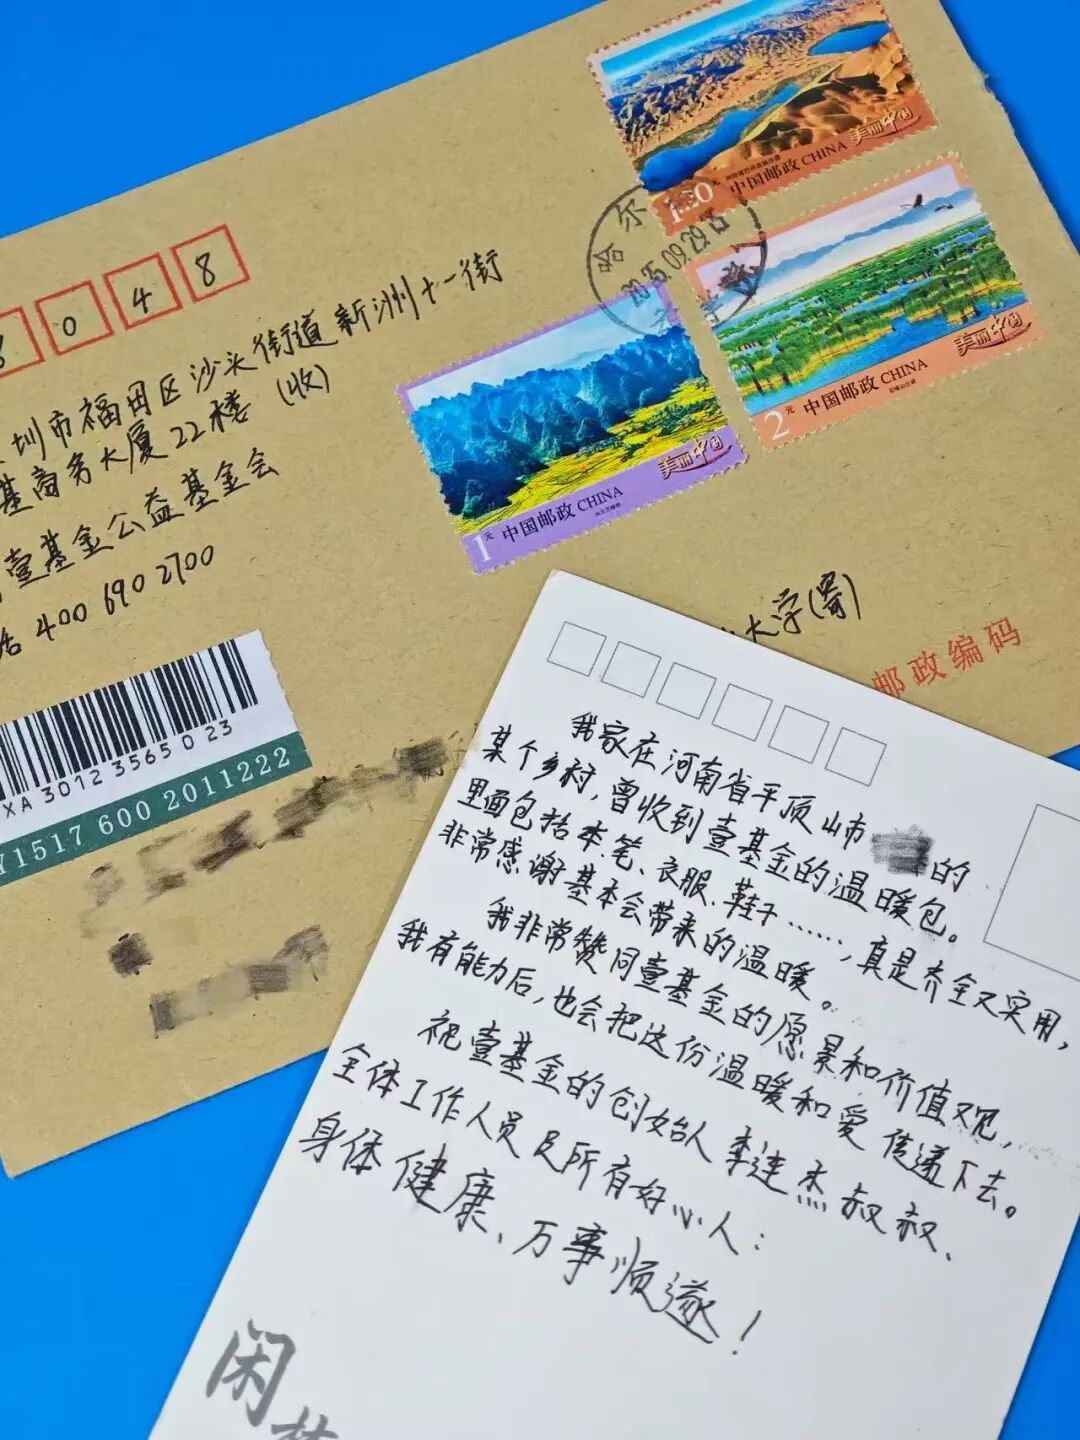 8 0 4 8
圳市福田区沙头街道新洲十一街
基商务大厦22楼 (收)
壹基金公益基金会
400 690 2700
XA 3012 3565 0 23
Y1517 600 2011222
1.20元 中国邮政 CHINA 美丽中国
2元 中国邮政 CHINA 美丽中国
石嘴山沙湖
1元 中国邮政 CHINA 美丽中国
兴义万峰林
哈尔
09.29
大学(寄)
邮政编码
我家在河南省平顶山市 的
某个乡村，曾收到壹基金的温暖包。
里面包括本笔、衣服、鞋子……，真是齐全又实用，
非常感谢基本会带来的温暖。
我非常赞同壹基金的愿景和价值观，
我有能力后，也会把这份温暖和愛传递下去。
祝壹基金的创始人李连杰叔叔、
全体工作人员及所有好心人：
身体健康、万事顺遂！
闲